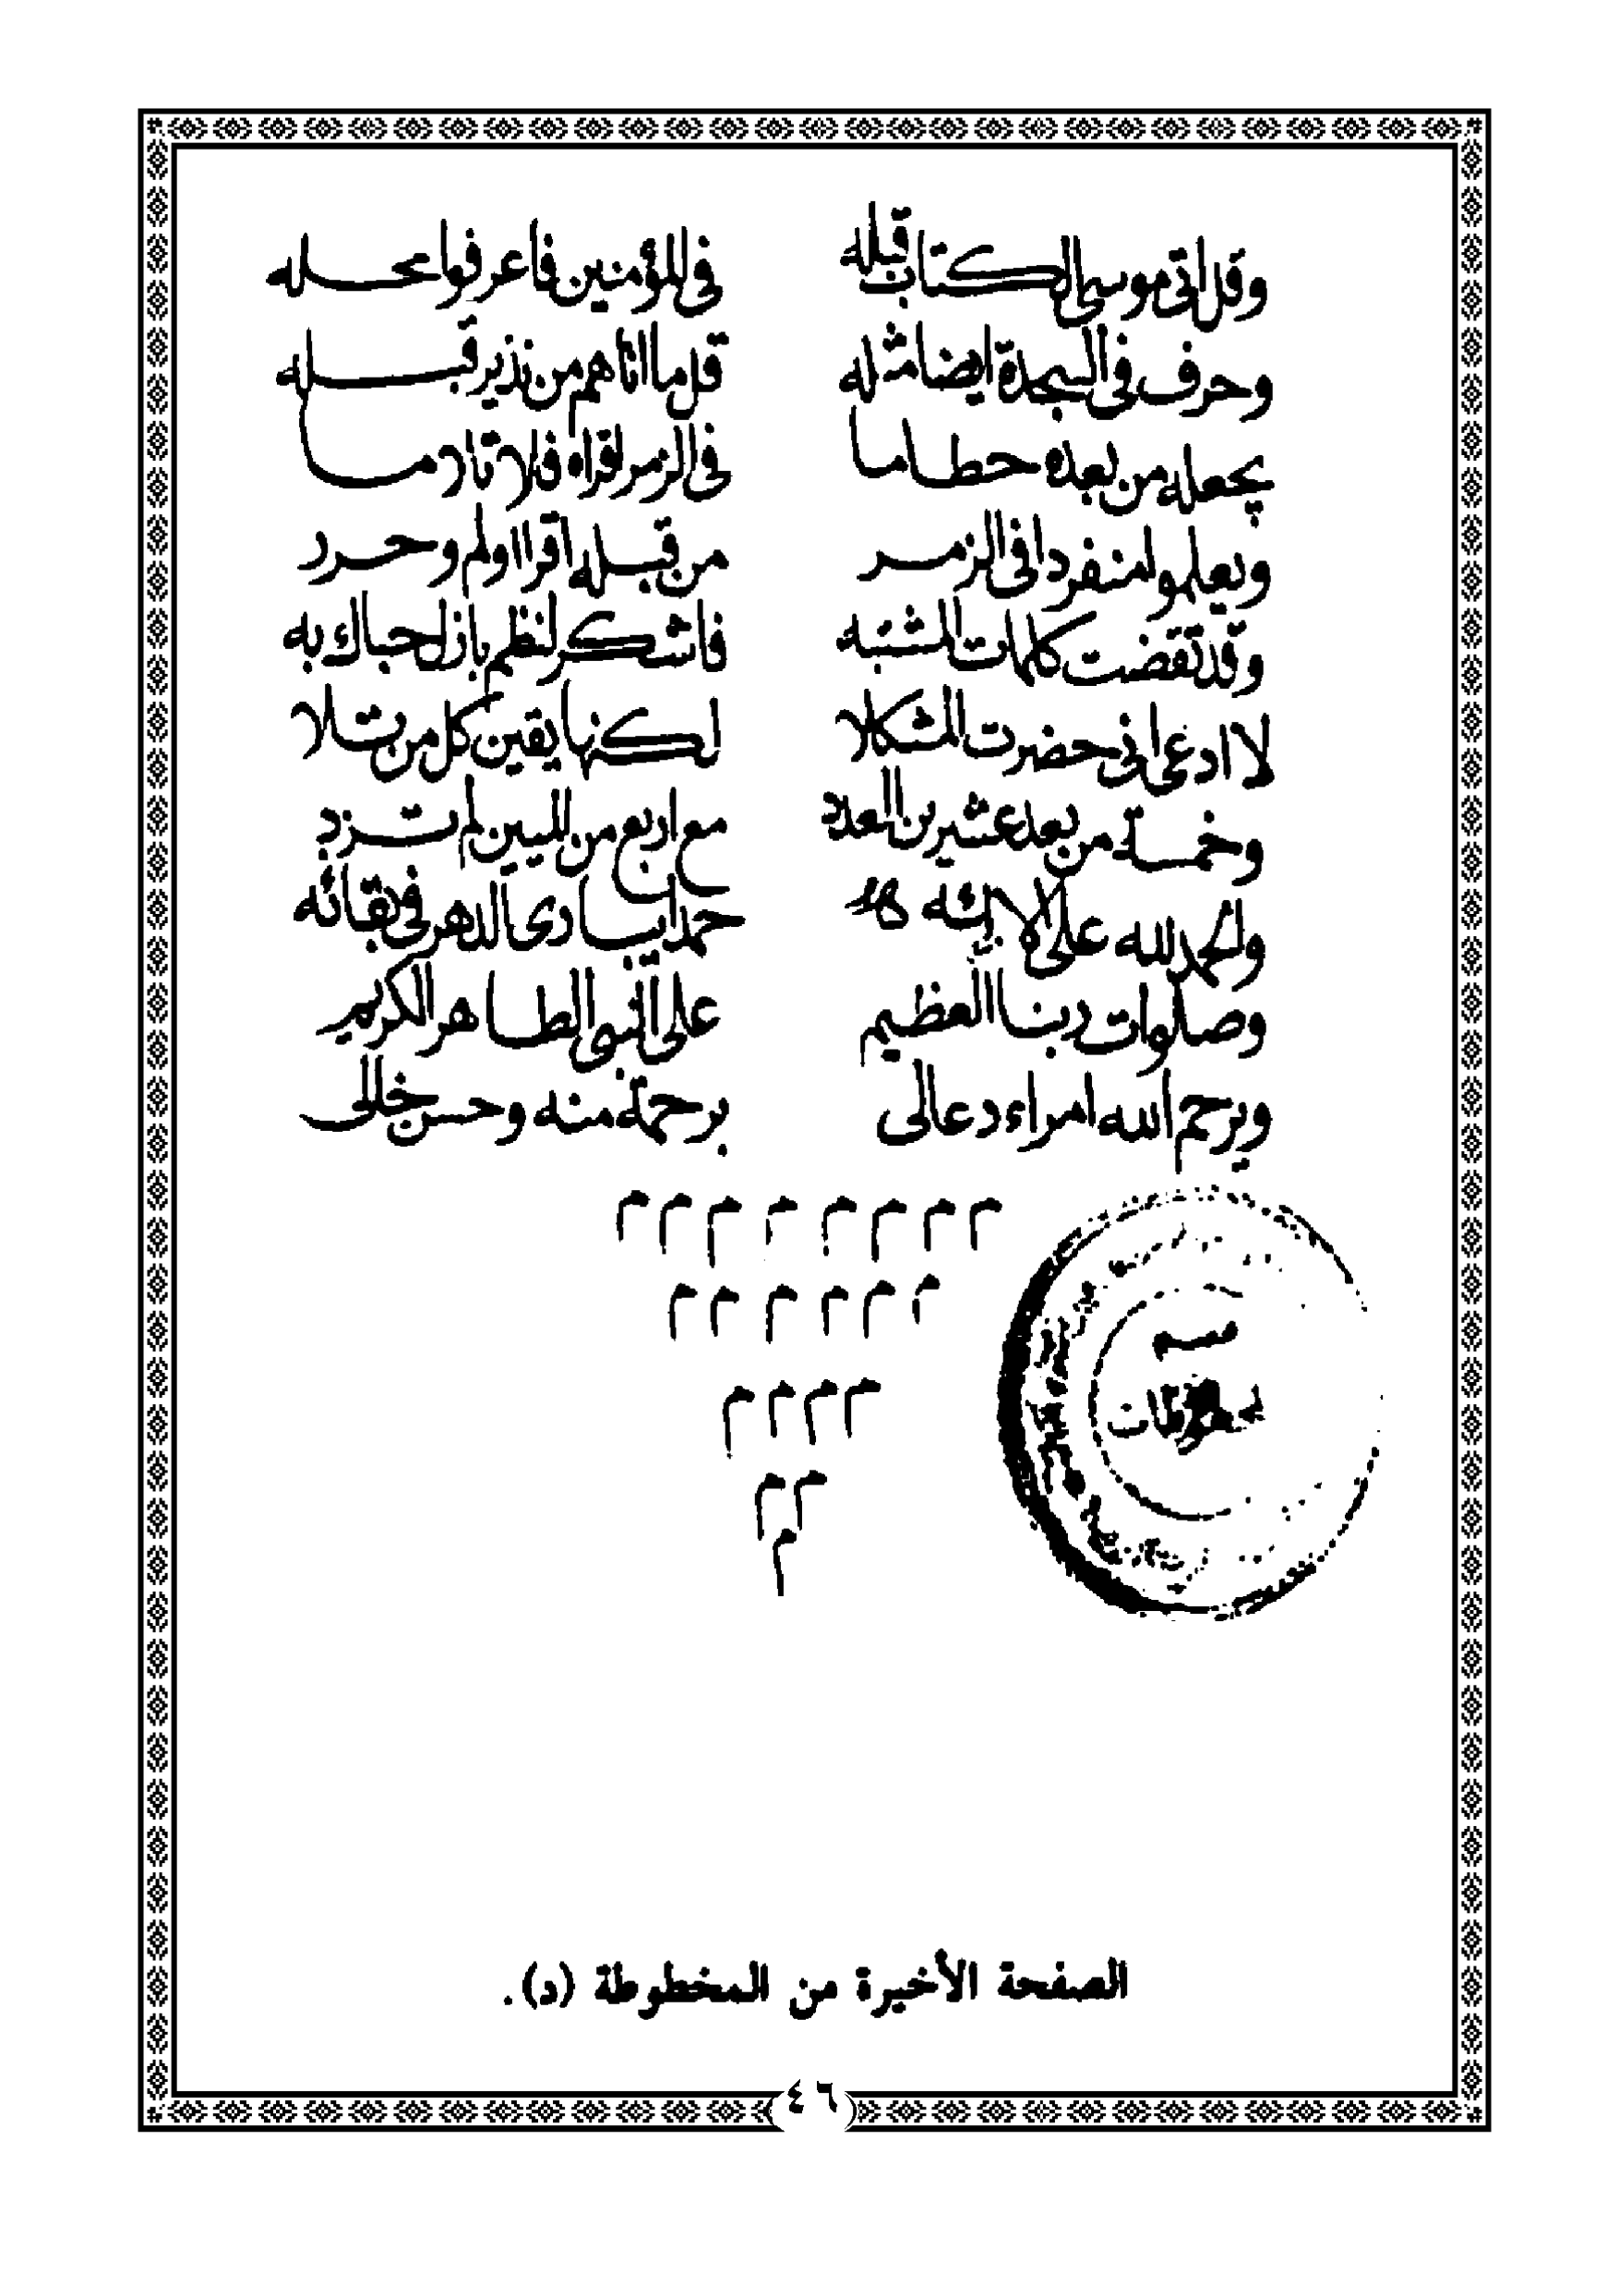 وقل اتى موسى الكتاب قبله في المؤمنين فاعرفوا محله
وحرف في السجدة ايضا مثله قل ما اتاهم من نذير قبله
يجعله من بعده حطاما في الزمر اقراه فلا تادما
ويعلموا منفردا في الزمر من قبله اقرا اولم وحرر
وقد تقضت كلمات المشتبه فاشكر لنظم بازل حباك به
لا ادعى انى حضرت المشكلا لكنها يقين كل من تلا
وخمسة من بعد عشرين العدد مع اربع من لم تزد
والحمد لله على الائه حمدا يبادى الدهر في بقائه
وصلوات ربنا العظيم على النبى الطاهر الكريم
ويرحم الله امراء دعالى برحمة منه وحسن خالى
م م م م م م م م
م م م م م م
م م م م
م م
م
قسم
مخطوطات
الصفحة الأخيرة من المخطوطة (د).
٤٦